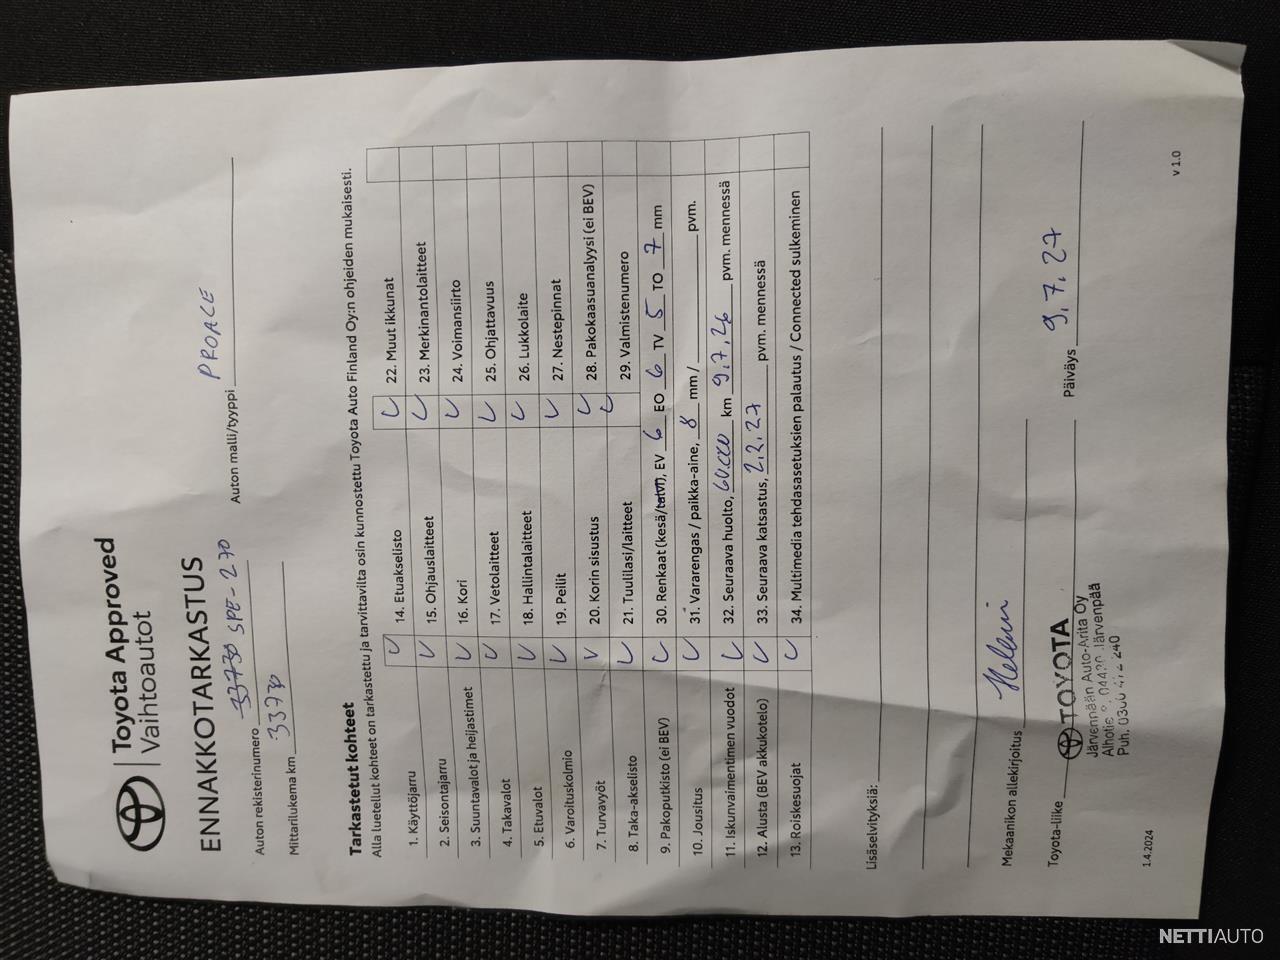 Toyota Approved
Vaihtoautot
ENNAKKOTARKASTUS
Auton rekisterinumero 33730 SPE-270 Auton malli/tyyppi PROACE
Mittarilukema km 33730
Tarkastetut kohteet
Alla luetellut kohteet on tarkastettu ja tarvittavilta osin kunnostettu Toyota Auto Finland Oy:n ohjeiden mukaisesti.
1. Käyttöjarru 14. Etuakselisto 22. Muut ikkunat
2. Seisontajarru 15. Ohjauslaitteet 23. Merkinantolaitteet
3. Suuntavalot ja heijastimet 16. Kori 24. Voimansiirto
4. Takavalot 17. Vetolaitteet 25. Ohjattavuus
5. Etuvalot 18. Hallintalaitteet 26. Lukkolaite
6. Varoituskolmio 19. Peilit 27. Nestepinnat
7. Turvavyöt 20. Korin sisustus 28. Pakokaasuanalyysi (ei BEV)
8. Taka-akselisto 21. Tuulilasi/laitteet 29. Valmistenumero
9. Pakoputkisto (ei BEV) 30. Renkaat (kesä/talvi), EV 6 EO 6 TV 5 TO 7 mm
10. Jousitus 31. Vararengas / paikka-aine, 8 mm / pvm.
11. Iskunvaimentimen vuodot 32. Seuraava huolto, 60.000 km 9.7.26 pvm. mennessä
12. Alusta (BEV akkukotelo) 33. Seuraava katsastus, 2.2.27 pvm. mennessä
13. Roiskesuojat 34. Multimedia tehdasasetuksien palautus / Connected sulkeminen
Lisäselvityksiä:
Mekaanikon allekirjoitus
Toyota-liike TOYOTA Päiväys 9.7.27
Järvennään Auto-Arita Oy
04420 Järvenpää
Puh.
1.4.2024 v 1.0
NETTIAUTO